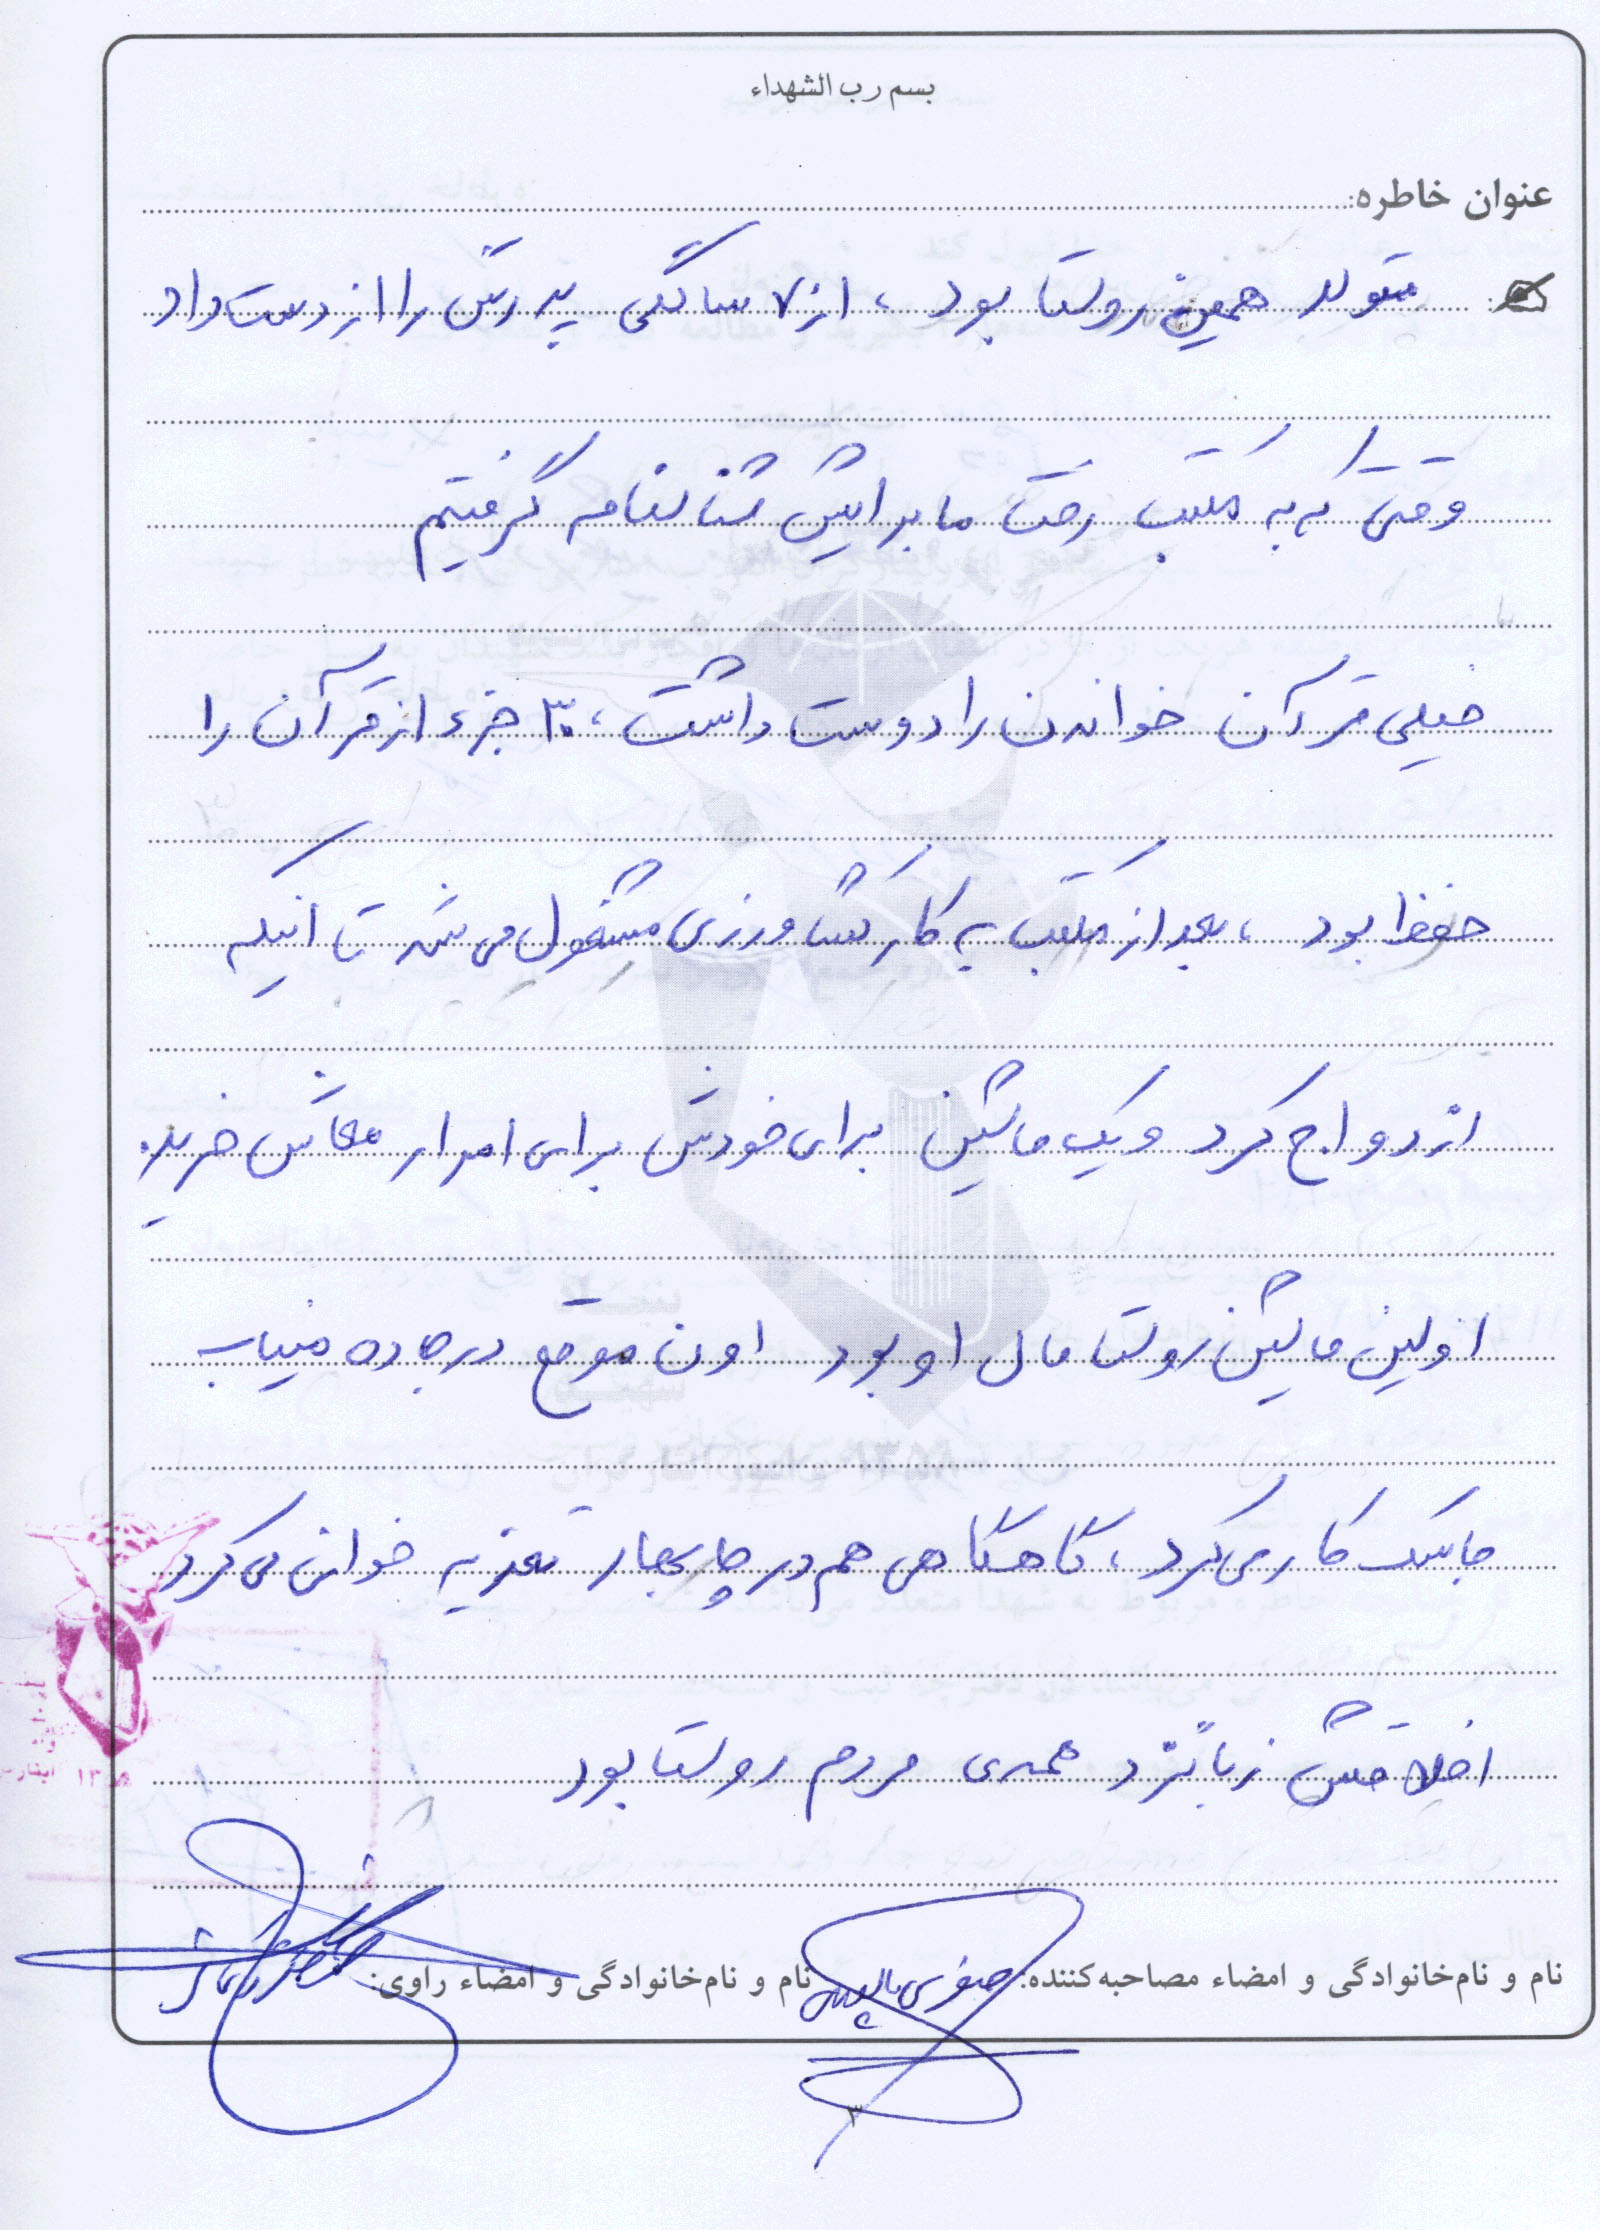 بسم رب الشهداء
عنوان خاطره:
متولد همین روستا بود، از ۷ سالگی پدرش را از دست داد
وقتی که به مکتب رفت ما برایش شناسنامه گرفتیم
خیلی قرآن خواندن را دوست داشت، ۳۰ جزء از قرآن را
حفظ بود، بعد از مکتب به کار کشاورزی مشغول می شد تا اینکه
ازدواج کرد و یک ماشین برای خودش برای امرار معاش خرید.
اولین ماشین روستا مال او بود اون موقع در جاده میناب
جاسک کار می کرد، گاهگاهی هم در چابهار تعزیه خوانی می کرد
اخلاقش زبانزد همه‌ی مردم روستا بود
نام و نام‌خانوادگی و امضاء مصاحبه‌کننده: نام و نام‌خانوادگی و امضاء راوی:
۳